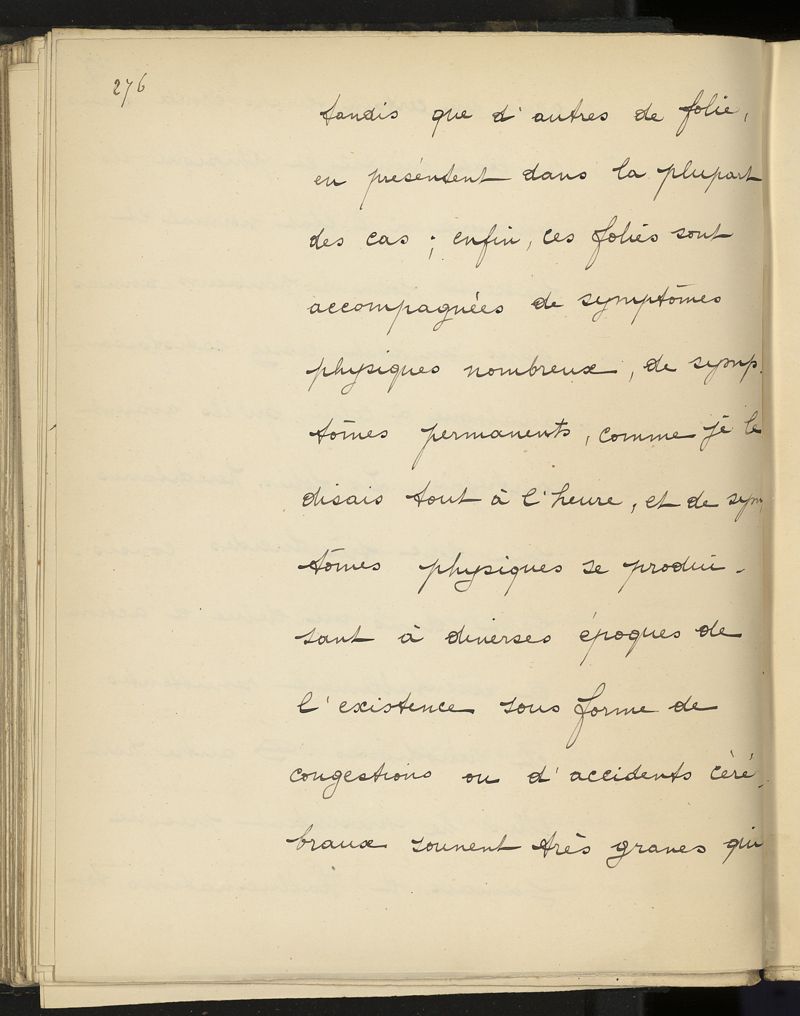 276
tandis que d'autres de folie,
en présentent dans la plupart
des cas ; enfin, ces folies sont
accompagnées de symptômes
physiques nombreux, de symp-
tômes permanents, comme je le
disais tout à l'heure, et de symp
tômes physiques se produi-
sant à diverses époques de
l'existence sous forme de
congestions ou d'accidents céré-
braux souvent très graves qui